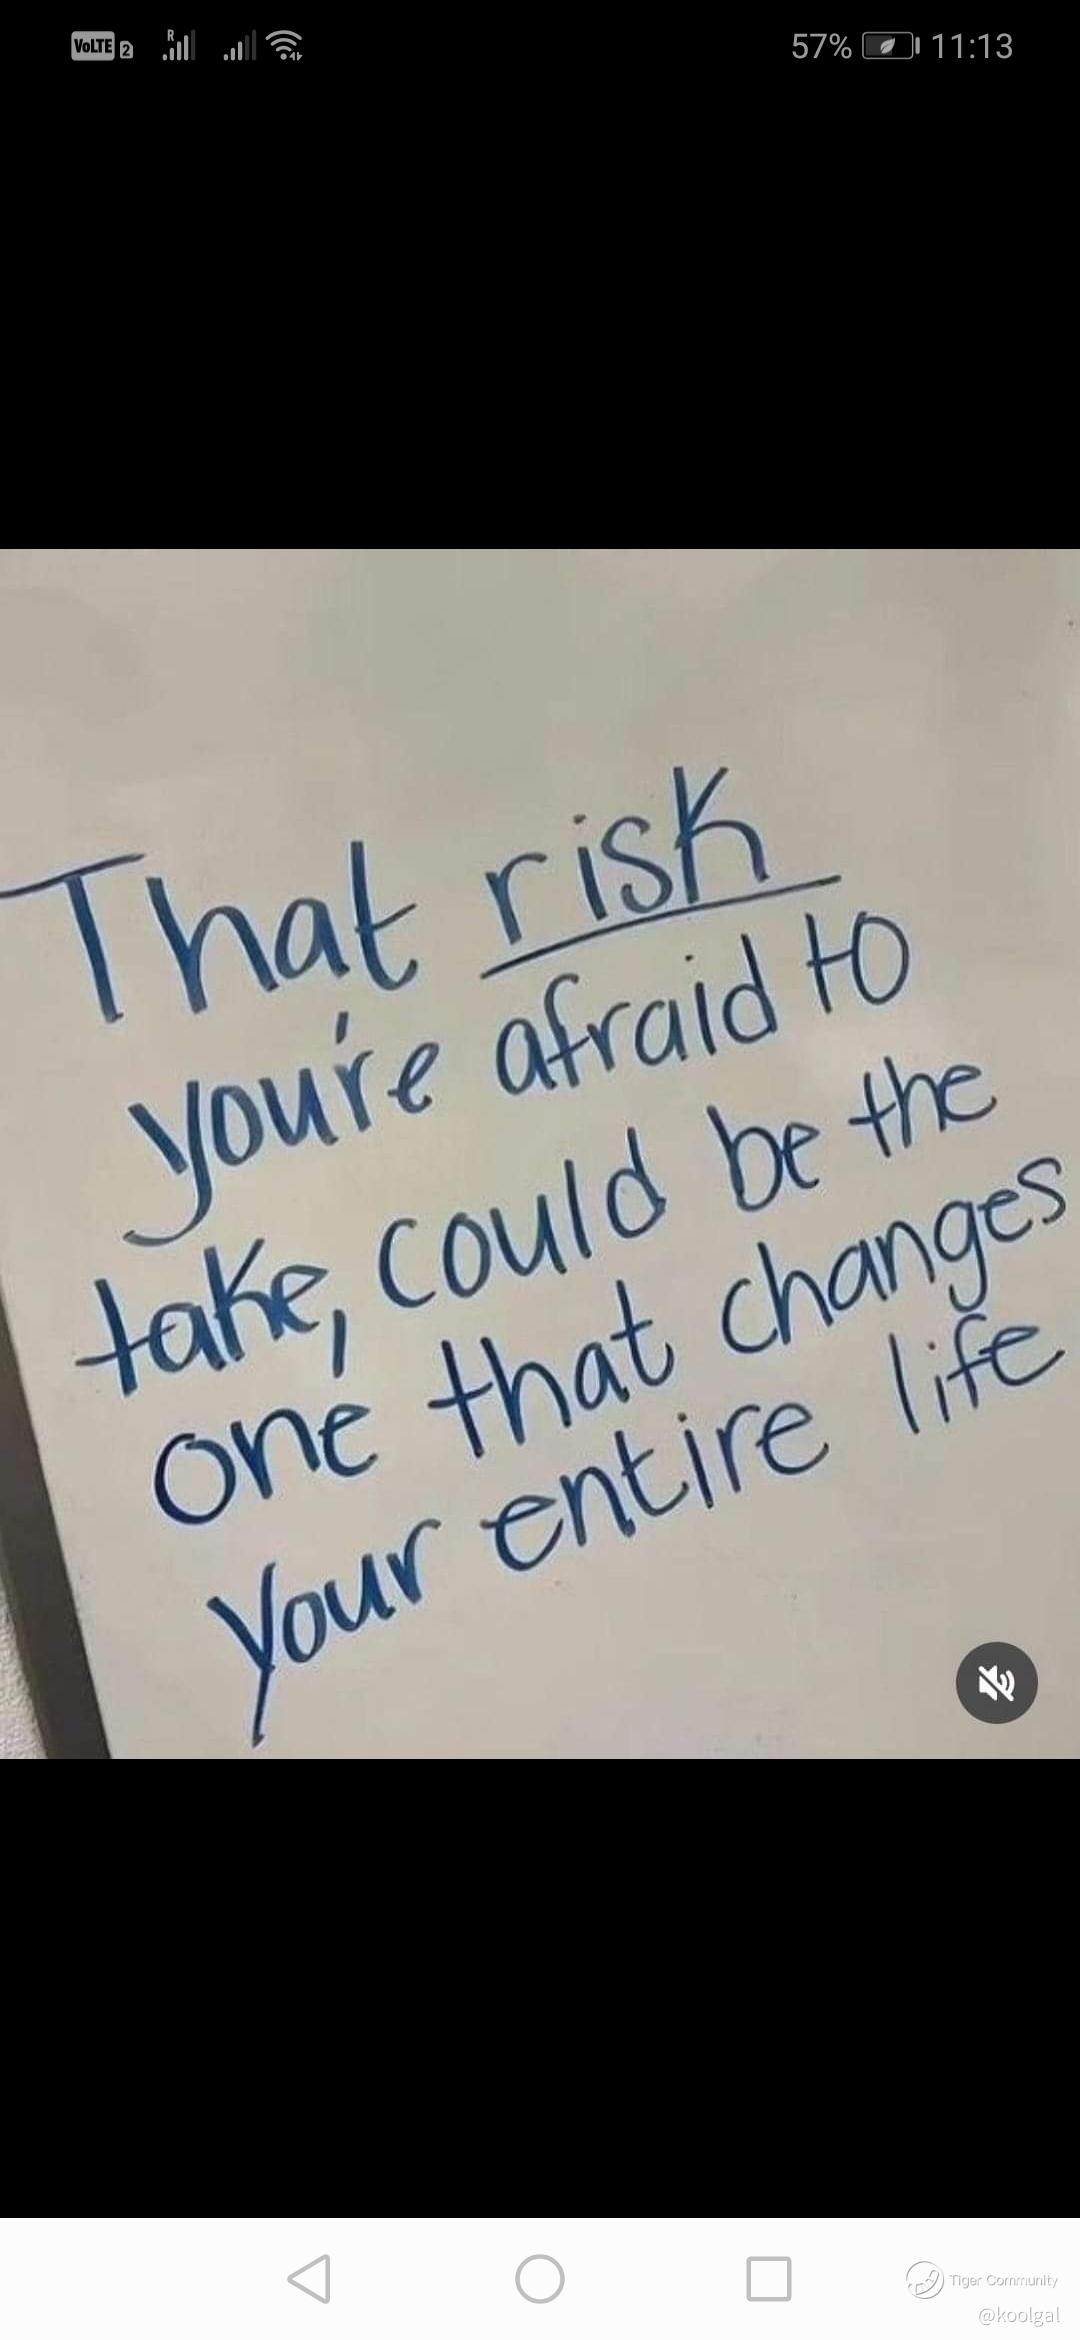 VoLTE 2 R 57% 11:13
That risk
you're afraid to
take, could be the
one that changes
your entire life
Tiger Community
@koolgal